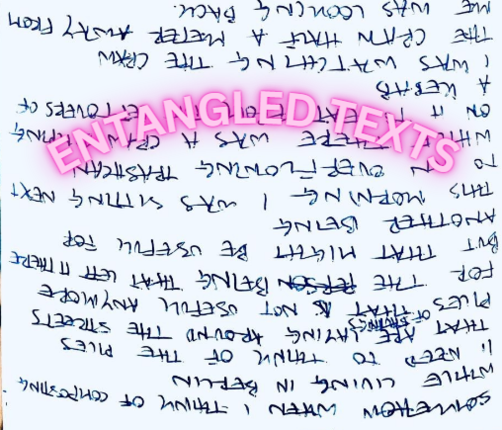 ENTANGLED TEXTS
SOMEHOW WHEN I THINK OF COMPOSTING
WHILE LIVING IN BERLIN
I NEED TO THINK OF THE PILES
THAT ARE LAYING AROUND THE STREETS
PILES OF THINGS THAT IS NOT USEFULL ANYMORE
FOR THE PERSON BEING THAT LEFT IT THERE
BUT THAT MIGHT BE USEFULL FOR
ANOTHER BEING
THIS MORNING I WAS SITTING NEXT
TO AN OVERFLOWING TRASHCAN
THERE WAS A
ON IT TO EAT OF
A KEBAB
I WAS WATCHING THE CRAW
THE CRAW HALF A METER AWAY FROM
ME WAS LOOKING BACK.